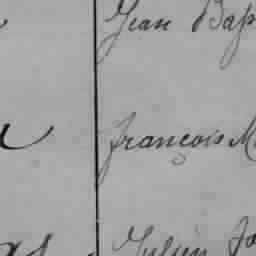 Jean Bap
françois M
Julien Jo